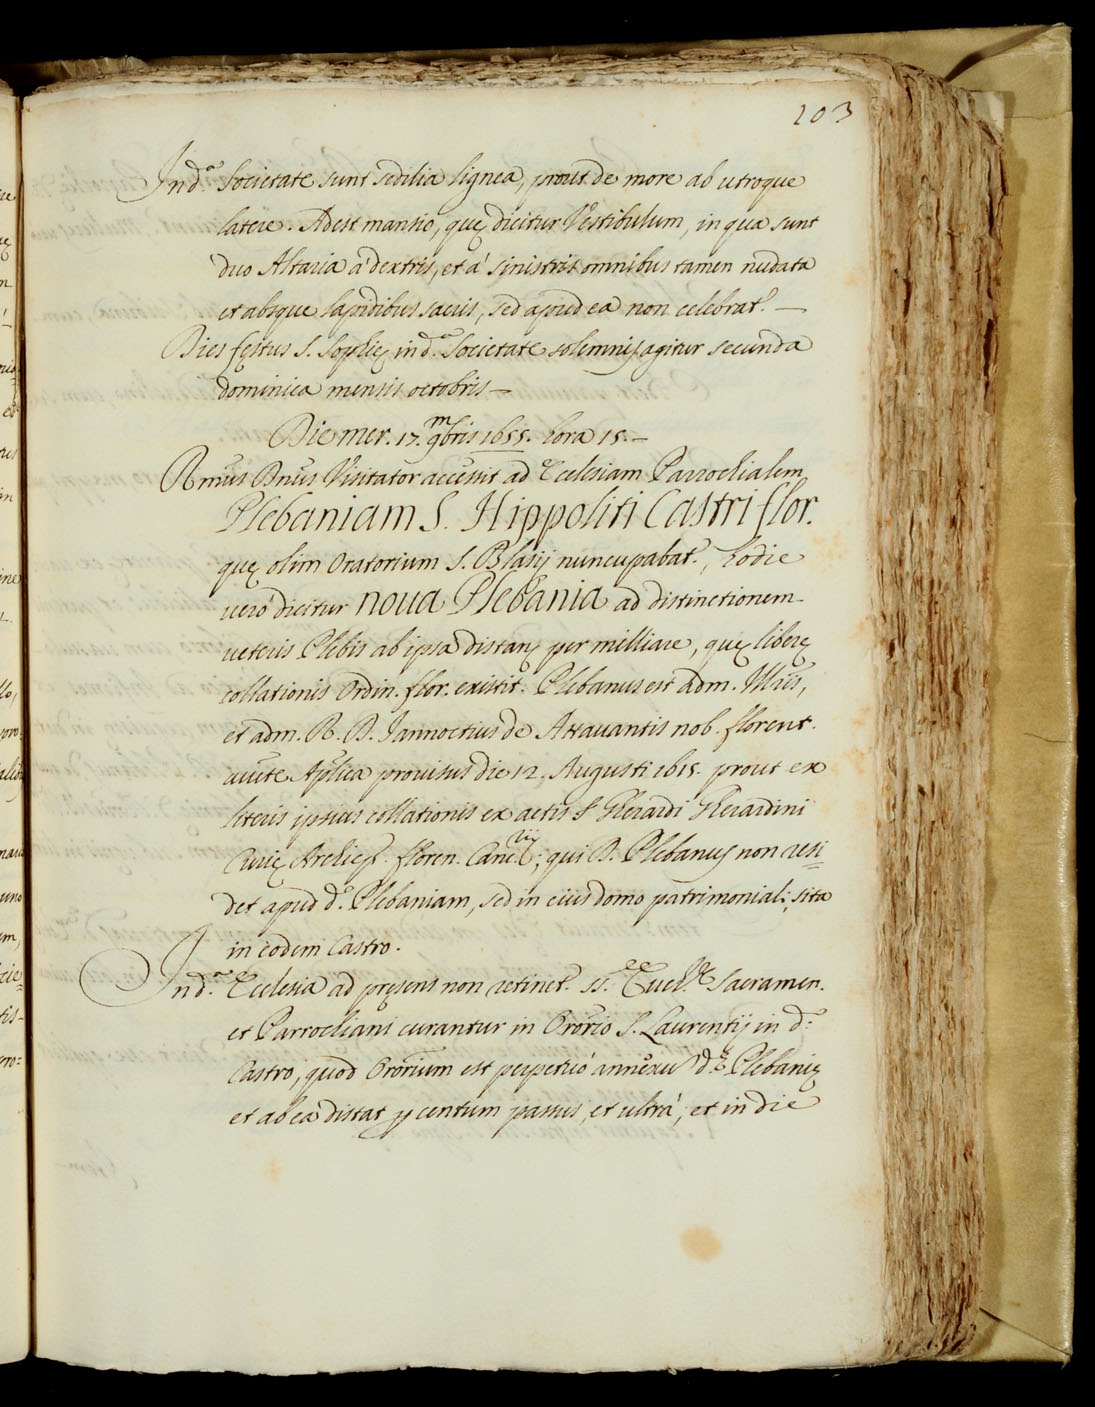 103
In d.ª Societate sunt sedilia lignea, prout de more ab utroque
latere. Adest mansio, quę dicitur Vestibulum, in qua sunt
duo Altaria à dextris, et à sinistris omnibus tamen nudata
et absque lapidibus sacris, sed apud ea non celebrat.ʳ —
Dies festus S. Sophię in d.ª Societate solemnis agitur secunda
dominica mensis octobris —
Die mer. 17. 9mbris 1655. hora 15. —
Rmus Dnus Visitator accessit ad Ecclesiam Parrochialem
Plebaniam S. Hippoliti Castri flor.
quę olim Oratorium S. Blasij nuncupabat.ʳ, hodie
verò dicitur noua Plebania ad distinctionem
ueteris Plebis ab ipsa distans per milliare, quę liberę
collationis Ordin. flor. existit. Plebanus est adm. Illris,
et adm. R. D. Iannoctius de Attauantis nob. florent.
aucte Aplica prouisus die 12. Augusti 1615. prout ex
literis ipsius collationis ex actis S. Gherardi Gherardini
Curię Archiep. floren. Canc.rij; qui D. Plebanus non resi=
det apud d.ª Plebaniam, sed in eius domo patrimoniali, sita
in eodem Castro.
In d.ª Ecclesia ad pręsens non retinet.ʳ SS. Euc.ę Sacramen.
et Parrochiani curantur in Ororio S. Laurentij in d.º
Castro, quod Ororium est perpetuò annexu d.ę Plebanię
et ab ea distat p centum passus, et ultrà, et in die